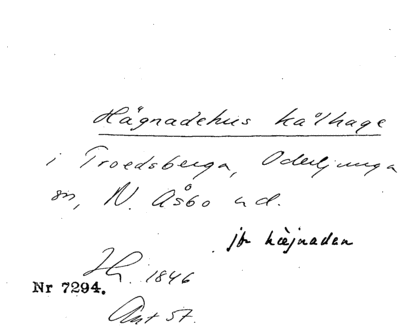 Hägnadehus kålhage
i Troedsberga, Oderljunga
sn, N. Åsbo hd.
jfr häjnaden
Hr. 1846
Nr 7294.
Ant 57.